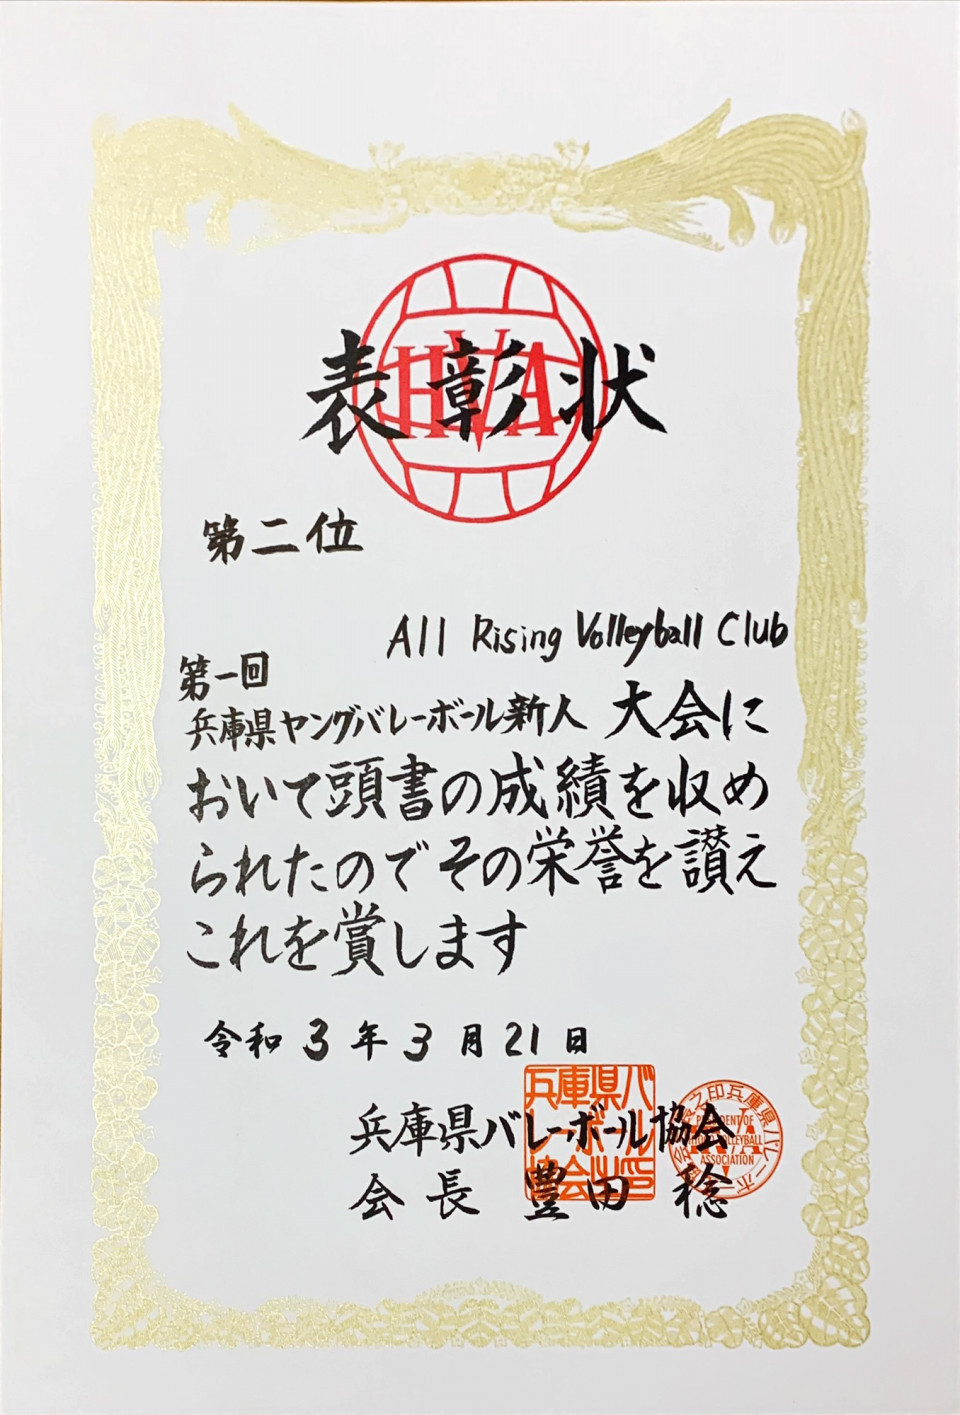 HVA
表彰状
第二位
All Rising Volleyball Club
第一回
兵庫県ヤングバレーボール新人 大会に
おいて頭書の成績を収め
られたのでその栄誉を讃え
これを賞します
令和 3 年 3 月 21 日
兵庫県バレーボール協会
会長 豊田 稔
兵庫県バ
レーボール
協会之印
PRESIDENT OF
VOLLEYBALL
ASSOCIATION